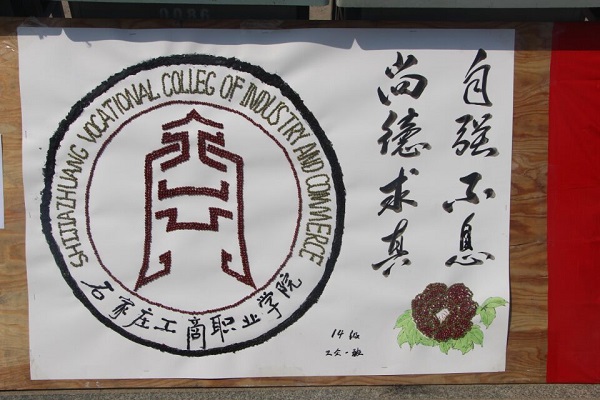 SHIJIAZHUANG VOCATIONAL COLLEG OF INDUSTRY AND COMMERCE
石家庄工商职业学院
自强不息
尚德求真
14级